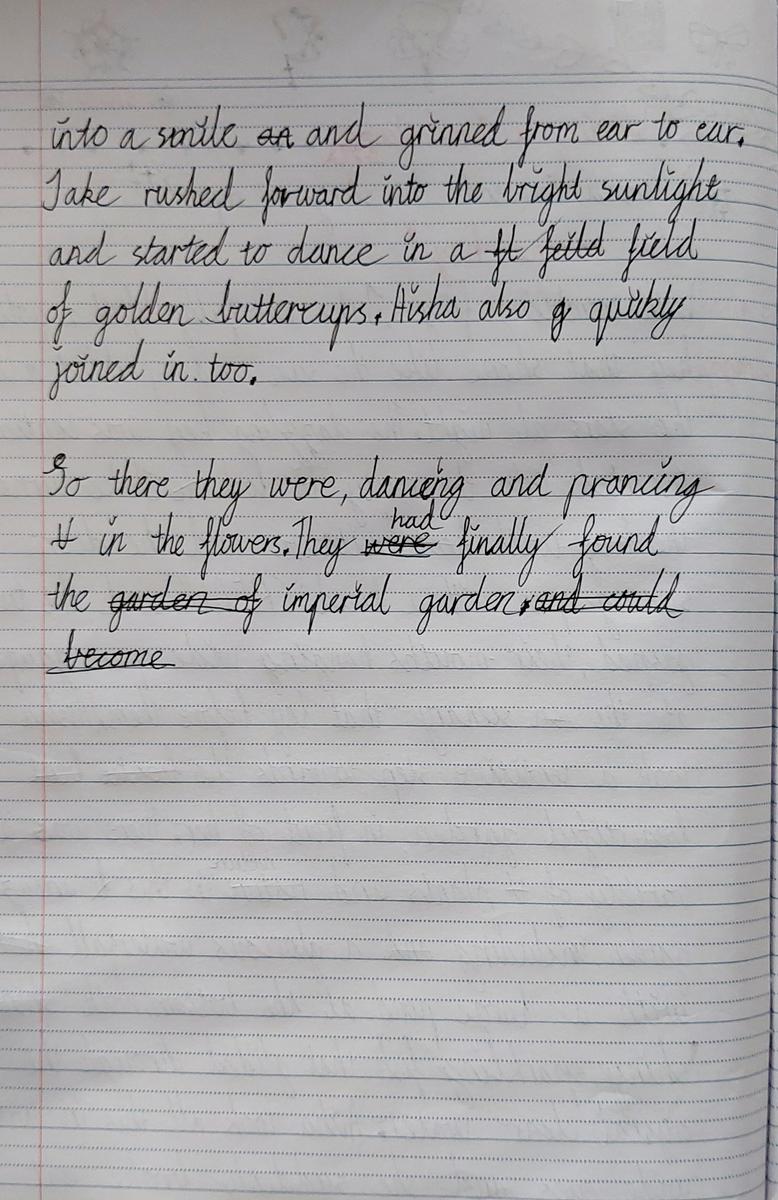 into a smile an and grinned from ear to ear.
Jake rushed forward into the bright sunlight
and started to dance in a ft feild field
of golden buttercups. Aisha also g quickly
joined in too.
So there they were, dancing and prancing
t in the flowers. They were had finally found
the garden of imperial garden. and could
become